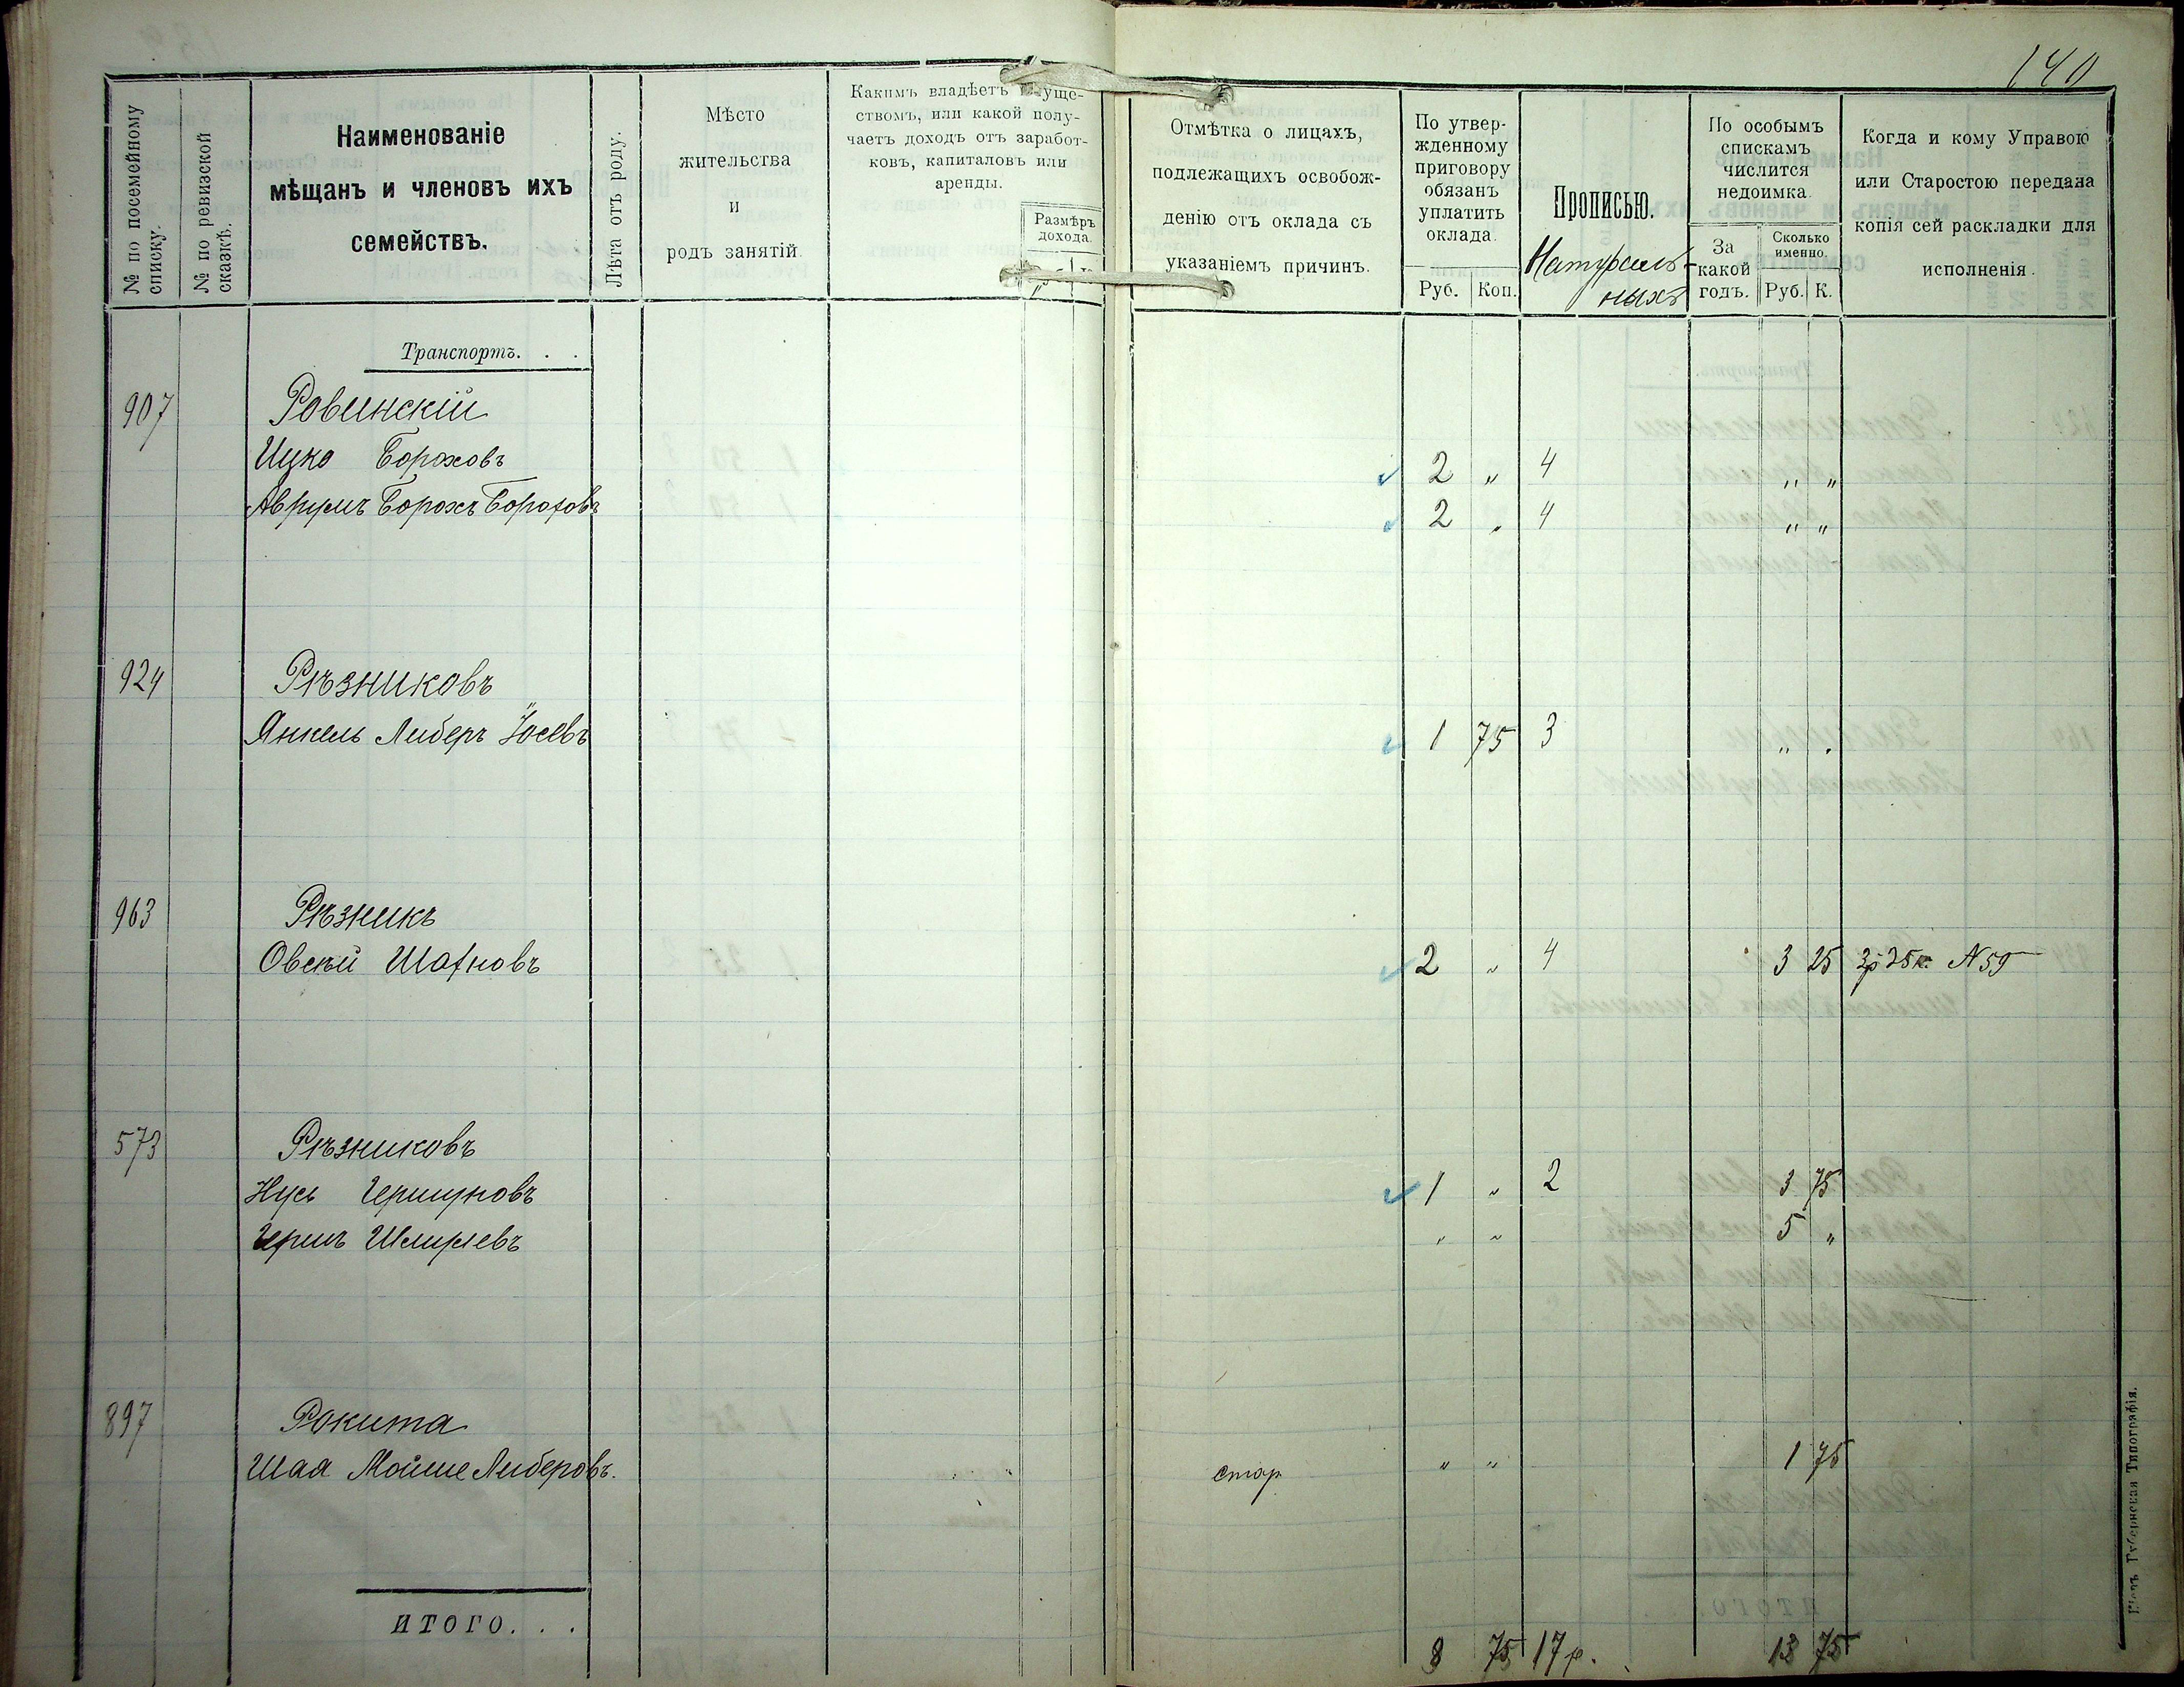 140
№ по посемейному списку.
№ по ревизской сказкѣ.
Наименованіе
мѣщанъ и членовъ ихъ
семействъ.
Лѣта отъ роду.
Мѣсто
жительства
и
родъ занятій.
Какимъ владѣетъ
ствомъ, или какой полу-
чаетъ доходъ отъ заработ-
ковъ, капиталовъ или
аренды.
Размѣръ
дохода.
Отмѣтка о лицахъ,
подлежащихъ освобож-
денію отъ оклада съ
указаніемъ причинъ.
По утвер-
жденному
приговору
обязанъ
уплатить
оклада.
Руб. Коп.
Прописью.
Натураль-
ныхъ
По особымъ
спискамъ
числится
недоимка.
За
какой
годъ.
Сколько
именно.
Руб. К.
Когда и кому Управою
или Старостою передана
копія сей раскладки для
исполненія.
Транспортъ. . .
907 Ровинскій
Ицко Бороховъ 2 „ 4 „ „
Аврумъ Борохъ Бороховъ 2 „ 4 „ „
924 Рѣзниковъ
Янкель Либеръ Іосевъ 1 75 3 „ „
963 Рѣзникъ
Овсѣй 2 „ 4 3 25 3р 25к. N 59
573 Рѣзниковъ
Нусь Гершуновъ 1 „ 2 3 75
Гершъ Шмулевъ „ „ 5 „
897 Рокита
Шая Мойше Либеровъ. стар. „ „ 1 75
ИТОГО. . . 8 75 17 р. 13 75
Кіевъ Губернская Типографія.